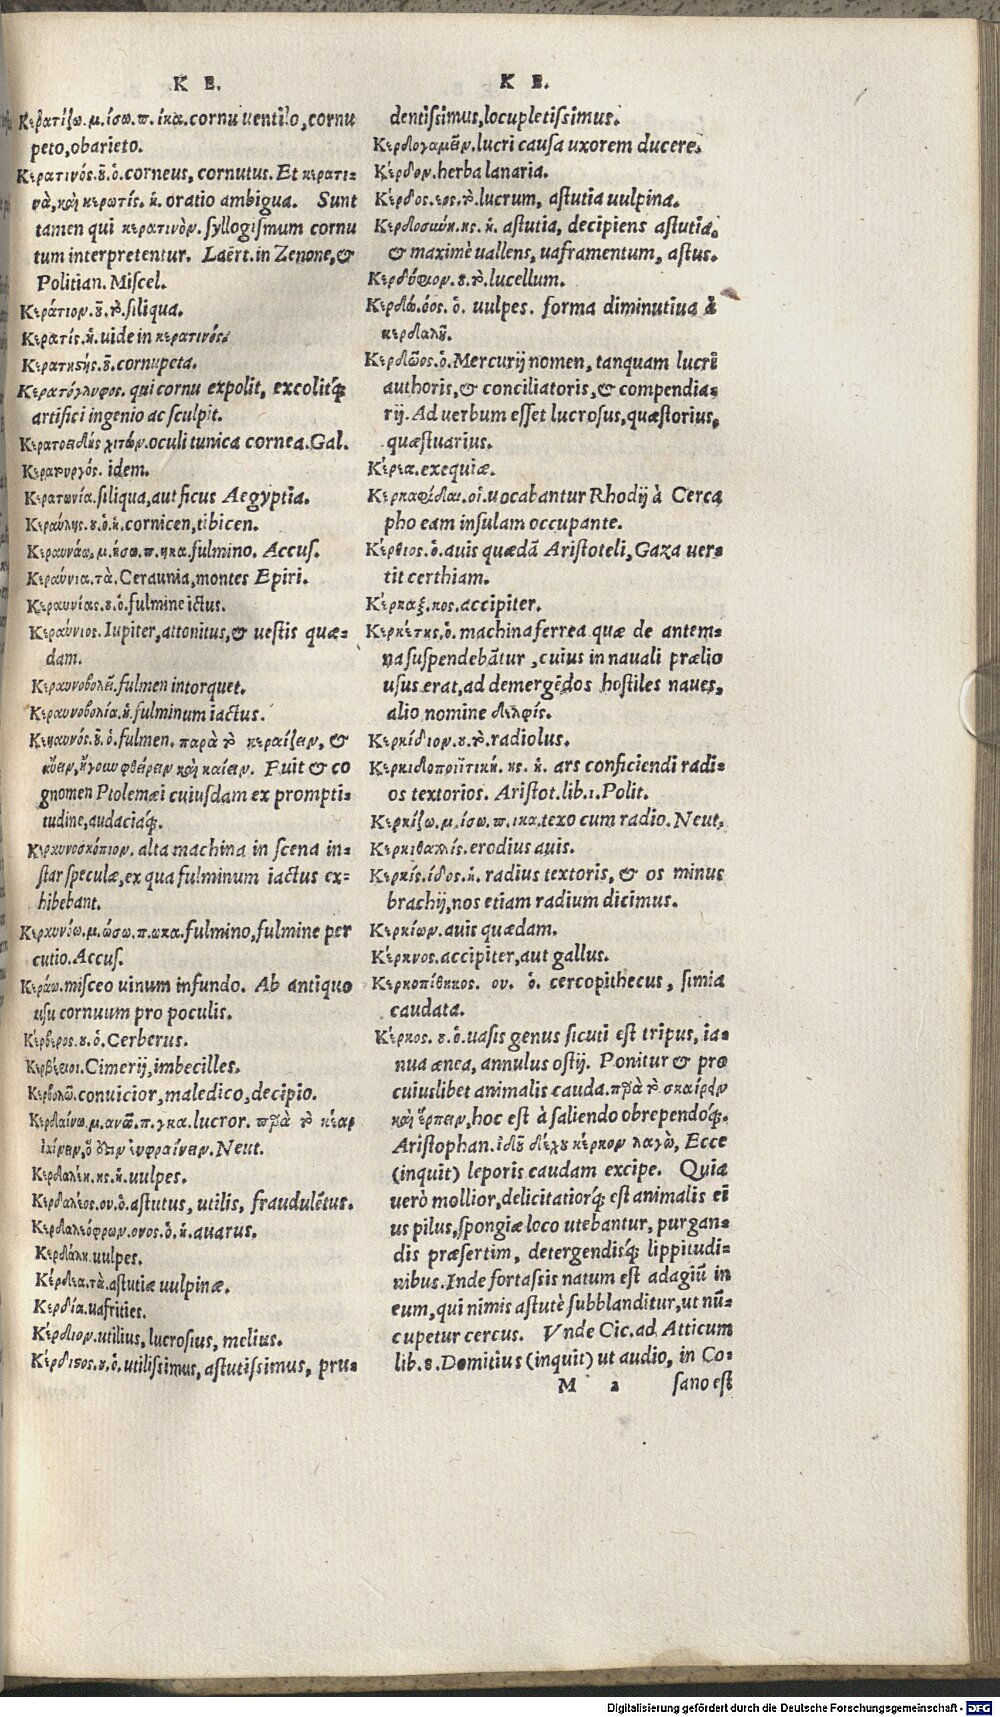 Κ Ε.
Κερατίζω.μ.ίσω.π.ίκα.cornu uentilo,cornu
peto,obarieto.
Κερατινός.ȣ̃.ὁ.corneus, cornutus. Et κερατι-
νὰ,καὶ κερωτίς. ἡ. oratio ambigua. Sunt
tamen qui κερατινὸν. ſyllogiſmum cornu
tum interpretentur. Laërt.in Zenone,&
Politian. Miſcel.
Κεράτιον.ȣ̃.τὸ.ſiliqua.
Κερατίς.ἡ.uide in κερατινός.
Κερατιστής.ȣ̃.cornupeta.
Κερατόγλυφος. qui cornu expolit, excolitq́;
artifici ingenio ac ſculpit.
Κερατοειδὴς χιτών.oculi tunica cornea.Gal.
Κερατουργός. idem.
Κερατωνία.ſiliqua,aut ficus Aegyptia.
Κεραύλης.ȣ.ὁ.ἡ.cornicen,tibicen.
Κεραυνάω.μ.ήσω.π.ηκα.fulmino. Accuſ.
Κεραύνια.τὰ.Ceraunia,montes Epiri.
Κεραυνίας.ȣ.ὁ.fulmine ictus.
Κεραύνιος.Iupiter,attonitus,& ueſtis quæ-
dam.
Κεραυνοβολεῖ.fulmen intorquet.
Κεραυνοβολία.ἡ.fulminum iactus.
Κεραυνός.ȣ̃.ὁ.fulmen. παρὰ τὸ κεραΐζειν, &
αὔειν,ἤγουν φθείρειν καὶ καίειν. Fuit & co
gnomen Ptolemæi cuiuſdam ex prompti-
tudine,audaciaq́;.
Κεραυνοσκόπιον. alta machina in ſcena in-
ſtar ſpeculæ,ex qua fulminum iactus ex-
hibebant.
Κεραυνόω.μ.ώσω.π.ωκα.fulmino,fulmine per
cutio.Accuſ.
Κεράω.miſceo uinum infundo. Ab antiquo
uſu cornuum pro poculis.
Κέρβερος.ȣ.ὁ.Cerberus.
Κερβέριοι.Cimerij,imbecilles.
Κερβολῶ.conuicior,maledico,decipio.
Κερδαίνω.μ.ανῶ.π.γκα.lucror. παρὰ τὸ κέαρ
ἰαίνειν,ὅ ἐστιν εὐφραίνειν.Neut.
Κερδαλέη.ης.ἡ.uulpes.
Κερδαλέος.ου.ὁ.aſtutus, utilis, fraudulẽtus.
Κερδαλεόφρων.ονος.ὁ.ἡ.auarus.
Κερδάλη.uulpes.
Κέρδεα.τὰ.aſtutiæ uulpinæ.
Κερδία.uafrities.
Κέρδιον.utilius,lucroſius, melius.
Κέρδιστος.ȣ.ὁ.utiliſsimus, aſtutiſsimus, pru-
Κ Ε.
dentiſsimus,locupletiſsimus.
Κερδογαμεῖν.lucri cauſa uxorem ducere.
Κέρδον.herba lanaria.
Κέρδος.εος.τὸ.lucrum, aſtutia uulpina.
Κερδοσύνη.ης.ἡ. aſtutia, decipiens aſtutia,
& maximè uallens, uaframentum, aſtus.
Κερδύφιον.ȣ.τὸ.lucellum.
Κερδώ.όος. ὁ. uulpes. forma diminutiua à
κερδαλῆ.
Κερδῶος.ὁ.Mercurij nomen, tanquam lucri
authoris,& conciliatoris,& compendia-
rij. Ad uerbum eſſet lucroſus,quæſtorius,
quæſtuarius.
Κέρεα.exequiæ.
Κερκαφίδαι.οἱ.uocabantur Rhodij à Cerca
pho eam inſulam occupante.
Κέρθιος.ὁ.auis quædã Ariſtoteli,Gaza uer-
tit certhiam.
Κέρκαξ.κος.accipiter.
Κερκέτης.ὁ. machina ferrea quæ de antem-
na ſuſpendebãtur, cuius in nauali prælio
uſus erat,ad demergẽdos hoſtiles naues,
alio nomine δελφίς.
Κερκίδιον.ȣ.τὸ.radiolus.
Κερκιδοποιϊτική. ης. ἡ. ars conficiendi radi-
os textorios. Ariſtot.lib.1.Polit.
Κερκίζω.μ.ίσω.π.ικα.texo cum radio. Neut.
Κερκιθαλίς.erodius auis.
Κερκίς.ίδος.ἡ. radius textoris, & os minus
brachij,nos etiam radium dicimus.
Κερκίων.auis quædam.
Κέρκνος.accipiter,aut gallus.
Κερκοπίθηκος. ου. ὁ. cercopithecus, ſimia
caudata.
Κέρκος. ȣ.ὁ.uaſis genus ſicuti eſt tripus, ia-
nua ænea, annulus oſtij. Ponitur & pro
cuiuslibet animalis cauda.παρὰ τὸ σκαίρειν
καὶ ἕρπειν,hoc eſt à ſaliendo obrependoq́;.
Ariſtophan.ἰδοῦ δέχου κέρκον λαγὼ, Ecce
(inquit) leporis caudam excipe. Quia
uerò mollior,delicitatiorq́; eſt animalis ei
us pilus,ſpongiæ loco utebantur, purgan-
dis præſertim, detergendisq́; lippitudi-
nibus. Inde fortaſsis natum eſt adagiũ in
eum,qui nimis aſtutè ſubblanditur,ut nũ-
cupetur cercus. Vnde Cic.ad Atticum
lib.8.Domitius (inquit) ut audio, in Co-
M 2 ſano eſt
Digitalisierung gefördert durch die Deutsche Forschungsgemeinschaft - DFG